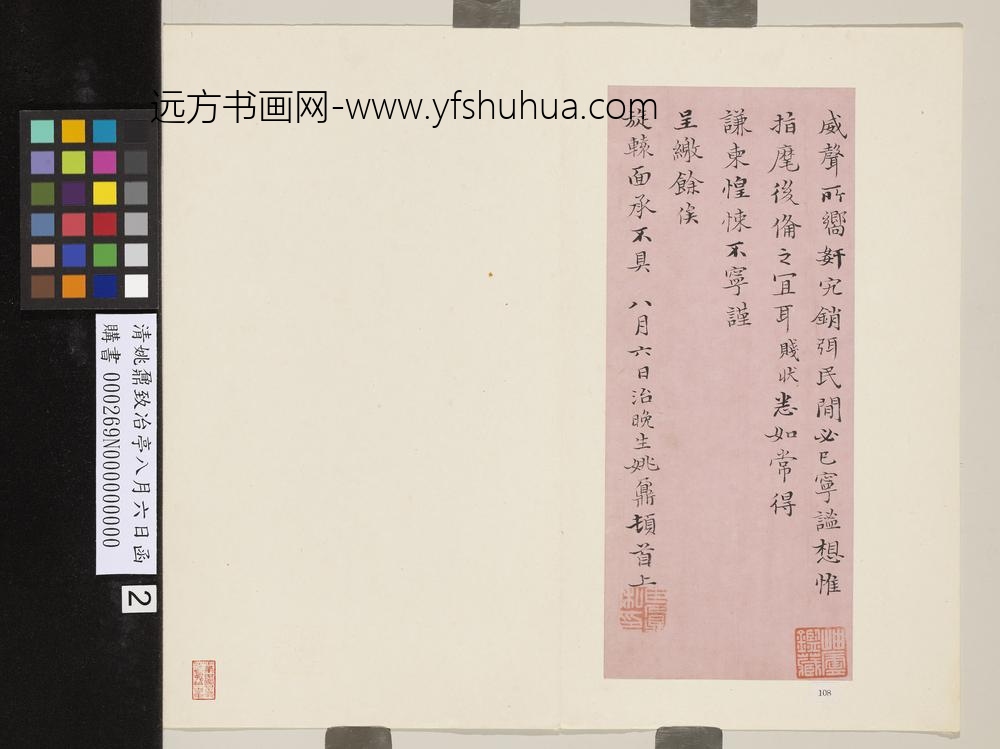 远方书画网-www.yfshuhua.com
威聲所嚮姧宄銷弭民閒必已寧謐想惟
指麾後脩之宜耳賤狀悉如常得
謙柬惶悚不寧謹
呈繳餘俟
旋轅面承不具 八月六日治晚生姚鼐頓首上
鑑藏
108
清姚鼐致冶亭八月六日函
購書 000269N000000000
2